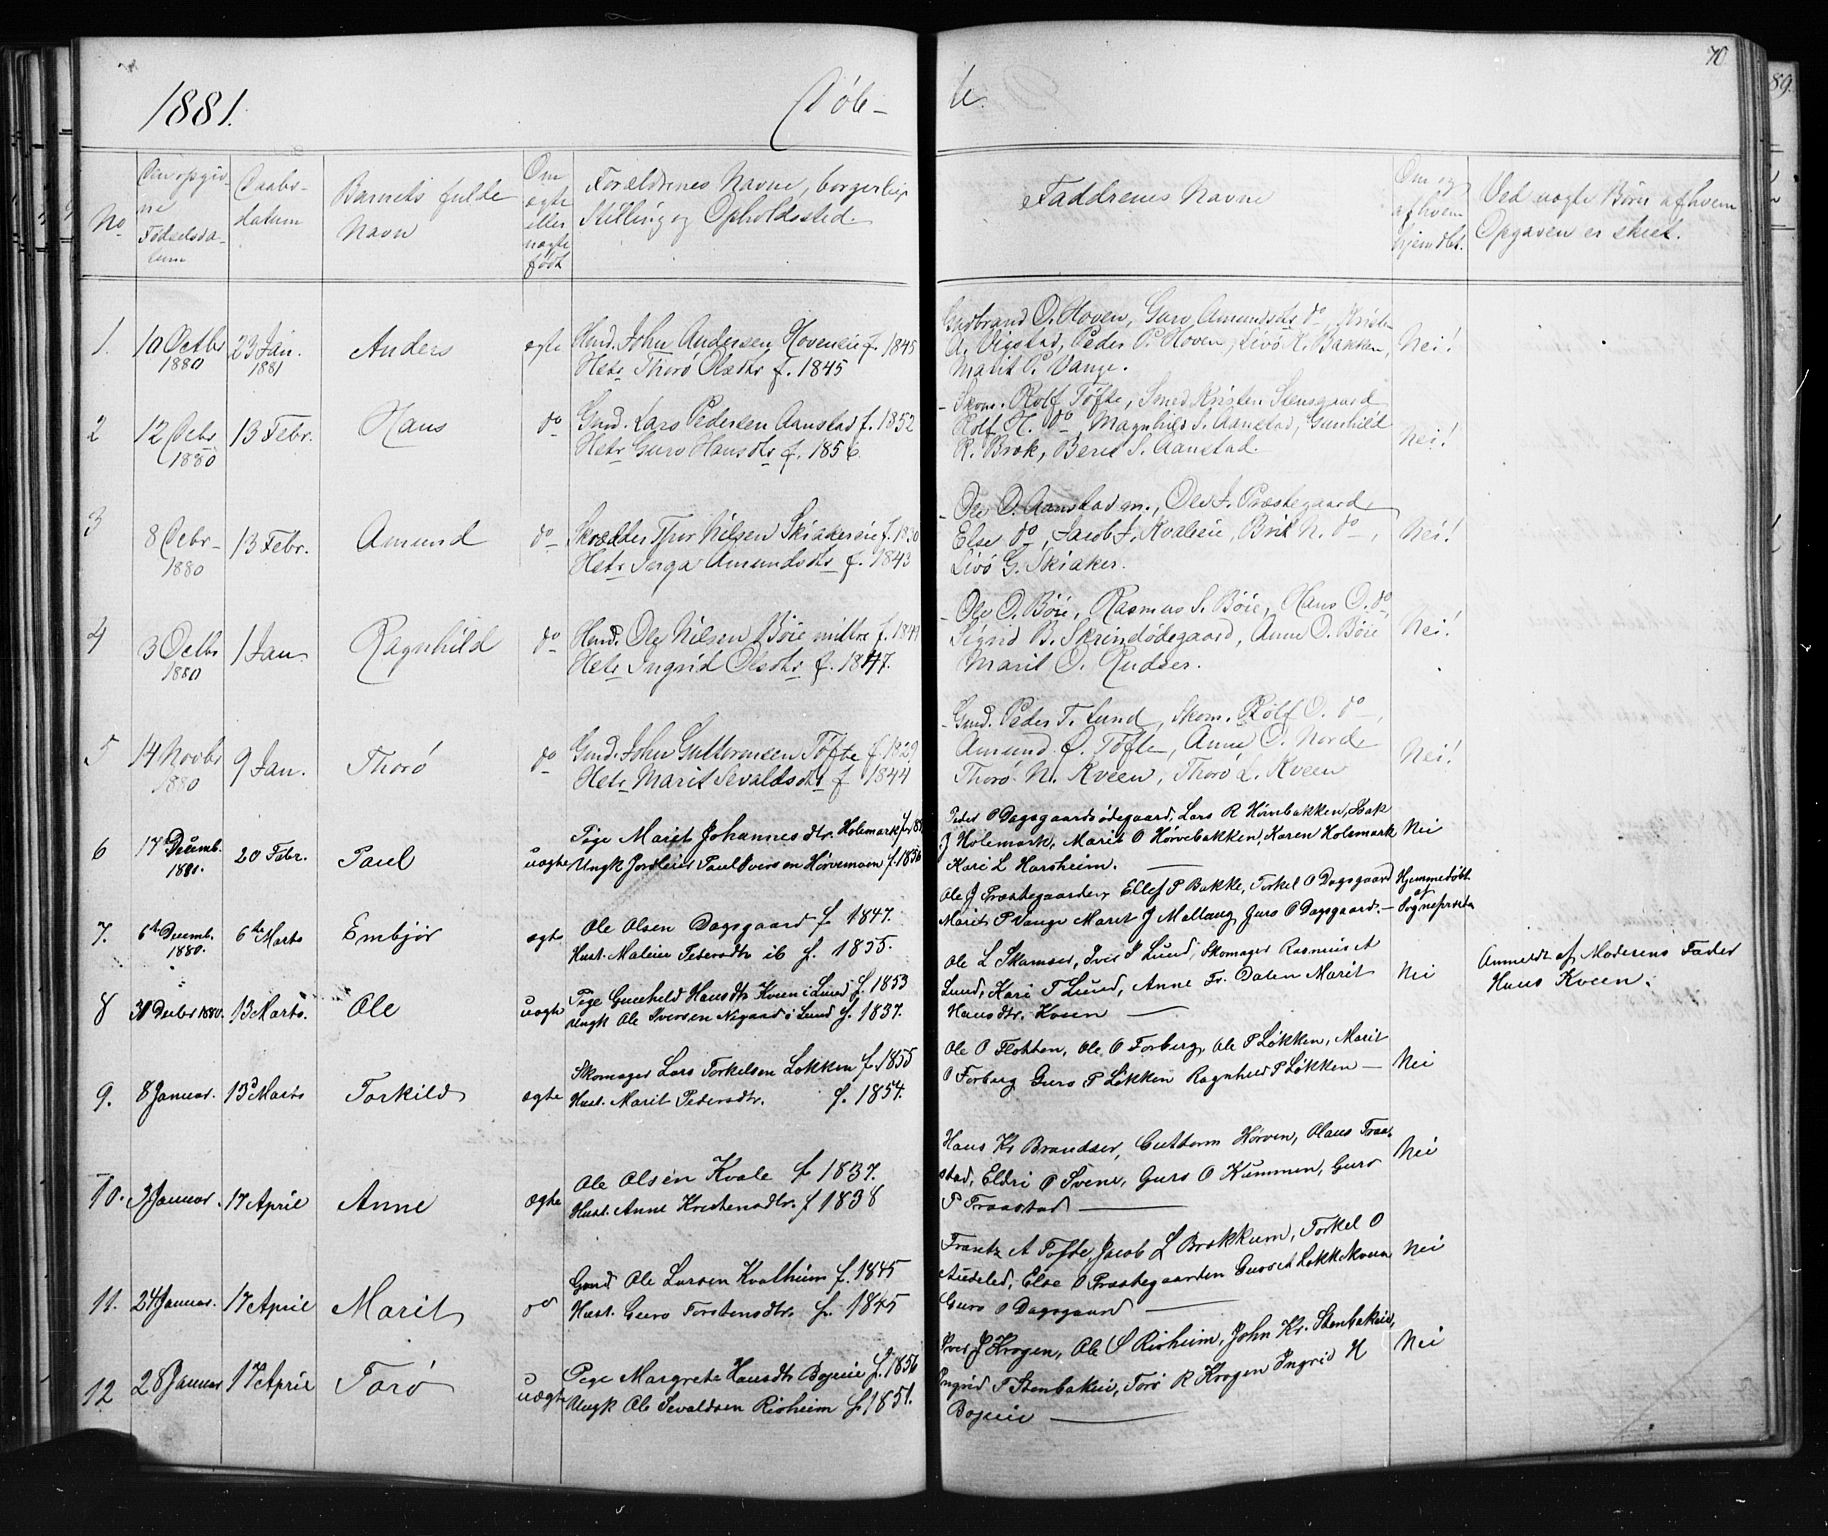 70
89.
1881.
Døb-
te.
No
Den opgiv-
ne
Fødselsda-
tum
Daabs-
datum
Barnets fulde
Navn
Om
ægte
eller
uægte
født
Forældrenes Navne, borgerlig
Stilling og Opholdssted
Faddrenes Navne
Om og
af hvem
hjemdbt.
Ved uægte Børn af hvem
Opgaven er skeet.
1.
10 Octbr
1880
23 Jan.
1881
Anders
ægte
Huusm. John Andersen Hoveneie f. 1845
Hstr Thorø Olsdtr f. 1845
Gudbrand O. Hoven, Guro Amundsdtr do
A. Vigstad, Peder P. Hoven, Livø K. Bakken,
Marit P. Vange.
Nei!
2
12 Decbr
1880
13 Febr.
Hans
do
Gmd. Lars Pedersen Aanstad f. 1852
Hstr Guro Hansdtr f. 1856.
Skom. Rolf Tofte, Smed Kristen Stensgaard
Rolf H. do Magnhild S. Aanstad, Gunhild
R. Brøk, Berit S. Aanstad.
Nei!
3
8 Decbr
1880
13 Febr.
Amund
do
Skrædder Thor Nilsen Skiakereie f. 1830
Hstr Inga Amundsdtr f. 1843
Ole O. Aanstad m., Ole J. Præstegaard
Else do, Jacob J. Kvaleeie, Brit N. do,
Livø G. Skiaker.
Nei!
4
3 Octbr
1880
1 Jan.
Ragnhild
do
Huusm. Ole Nilsen Bøie mittre f. 1844
Hstr Ingrid Olsdtr f. 1847.
Ole O. Bøie, Rasmus S. Bøie, Hans O. do
Sigrid B. Skrindødegaard, Anne O. Bøie
Marit O. Rudser.
Nei!
5
14 Novbr
1880
9 Jan.
Thorø
do
Gmd. John Guttormsen Tofte f. 1829
Hstr Marit Sevaldsdtr f 1844
Gmd. Peder T. Lund, Skom. Rolf O. do,
Amund O. Tofte, Anne O. Norde
Thorø N. Kveen, Thorø L. Kveen
Nei!
6
17 Decemb.
1880.
20 Febr.
Paul
uægte
Pige Marit Johannesdtr. Holemark f 18
Ungk Paul Iversen Hørvemoen f. 1856
Peder O Dagsgaardsødegaard, Lars R Hørvbakken, Isak
J Holemark, Marit O Hørvebakken, Karen Holemark
Kari L Harsheim.
Nei
7.
6te Decemb.
1880.
6te Marts
Embjør
ægte
Ole Olsen Dagsgaard f. 1847.
Hust. Malene Pedersdtr ib f. 1855.
Ole J Præstegaarden, Ellef P Bakke, Torkel O Dagsgaard
Marit P Vange Marit J Mallaug, Guro O Dagsgaard.
Hjemmedøbt
af
Sognepresten
8
30 Decbr 1880.
13 Marts.
Ole
uægte
Pige Gunhild Hansdtr Kveen i Lund f. 1853
Ungk Ole Iversen Nigaard i Lund f. 1837.
Ole L Skamser, Iver S Lund, Skomager Rasmus A
Lund, Kari T Lund, Anne Fr. Dalen Marit
Hansdtr. Kveen
Nei
Anmeldt af Moderens Fader
Hans Kveen.
9.
8 Januar.
13 Marts
Torkild
ægte
Skomager Lars Torkelsen Løkken f. 1855
Hust. Marit Pedersdtr. f. 1854.
Ole O Flotten, Ole O Forberg, Ole P Løkken, Marit
O Forberg Guro P Løkken Ragnhild P Løkken
Nei
10.
3 Januar.
17 April
Anne
ægte
Ole Olsen Kvale f. 1837.
Hust. Anne Kristensdtr. f 1838
Hans Kr Brandser, Guttorm Hørven, Olaus Fraa-
stad, Eldri P Svene, Guro O Kummen, Guro
P Fraastad
Nei
11.
24 Januar.
17 April
Marit
do
Gmd Ole Larsen Kvalheim f. 1845
Hust. Guro Torstensdtr. f. 1845
Frantz A Tofte, Jacob L Brøkkum, Torkel O
Audeled, Else O Præstegaarden Guro A
Guro O Dagsgaard
Nei
12
28 Januar
17 April
Torø
uægte
Pige Margrete Hansdtr Bojeeie f. 1856
Ungk Ole Sevaldsen Risheim f. 1851.
Iver J Krogen, Ole S Risheim, John Kr. Stenbakeie,
Ingrid T Stenbakeie, Torø R Krogen Ingrid H
Bojeeie
Nei